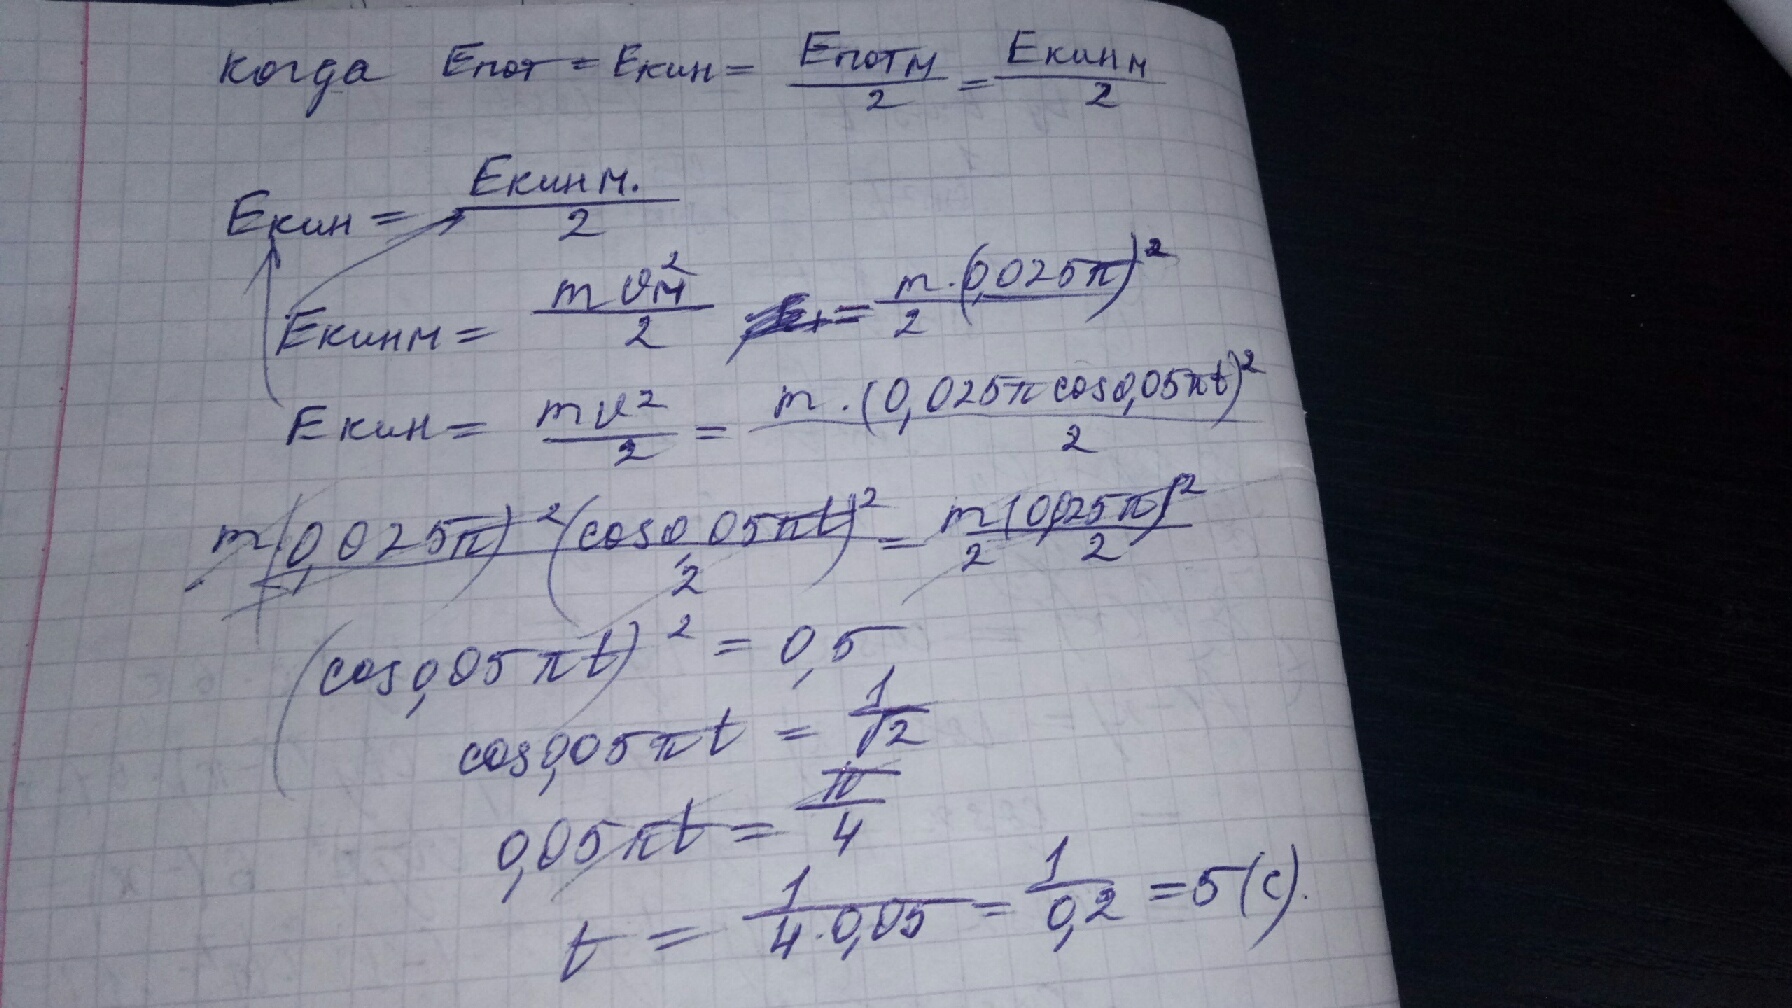 когда Eпот = Eкин = Eпотм/2 = Eкинм/2
Eкин = Eкинм./2
Eкинм = mυм²/2 = m·(0,025π)²/2
Eкин = mυ²/2 = m·(0,025π cos0,05πt)²/2
m(0,025π)²(cos0,05πt)²/2 = m(0,025π)²/2·2
(cos0,05πt)² = 0,5
cos0,05πt = 1/√2
0,05πt = π/4
t = 1/4·0,05 = 1/0,2 = 5(с).